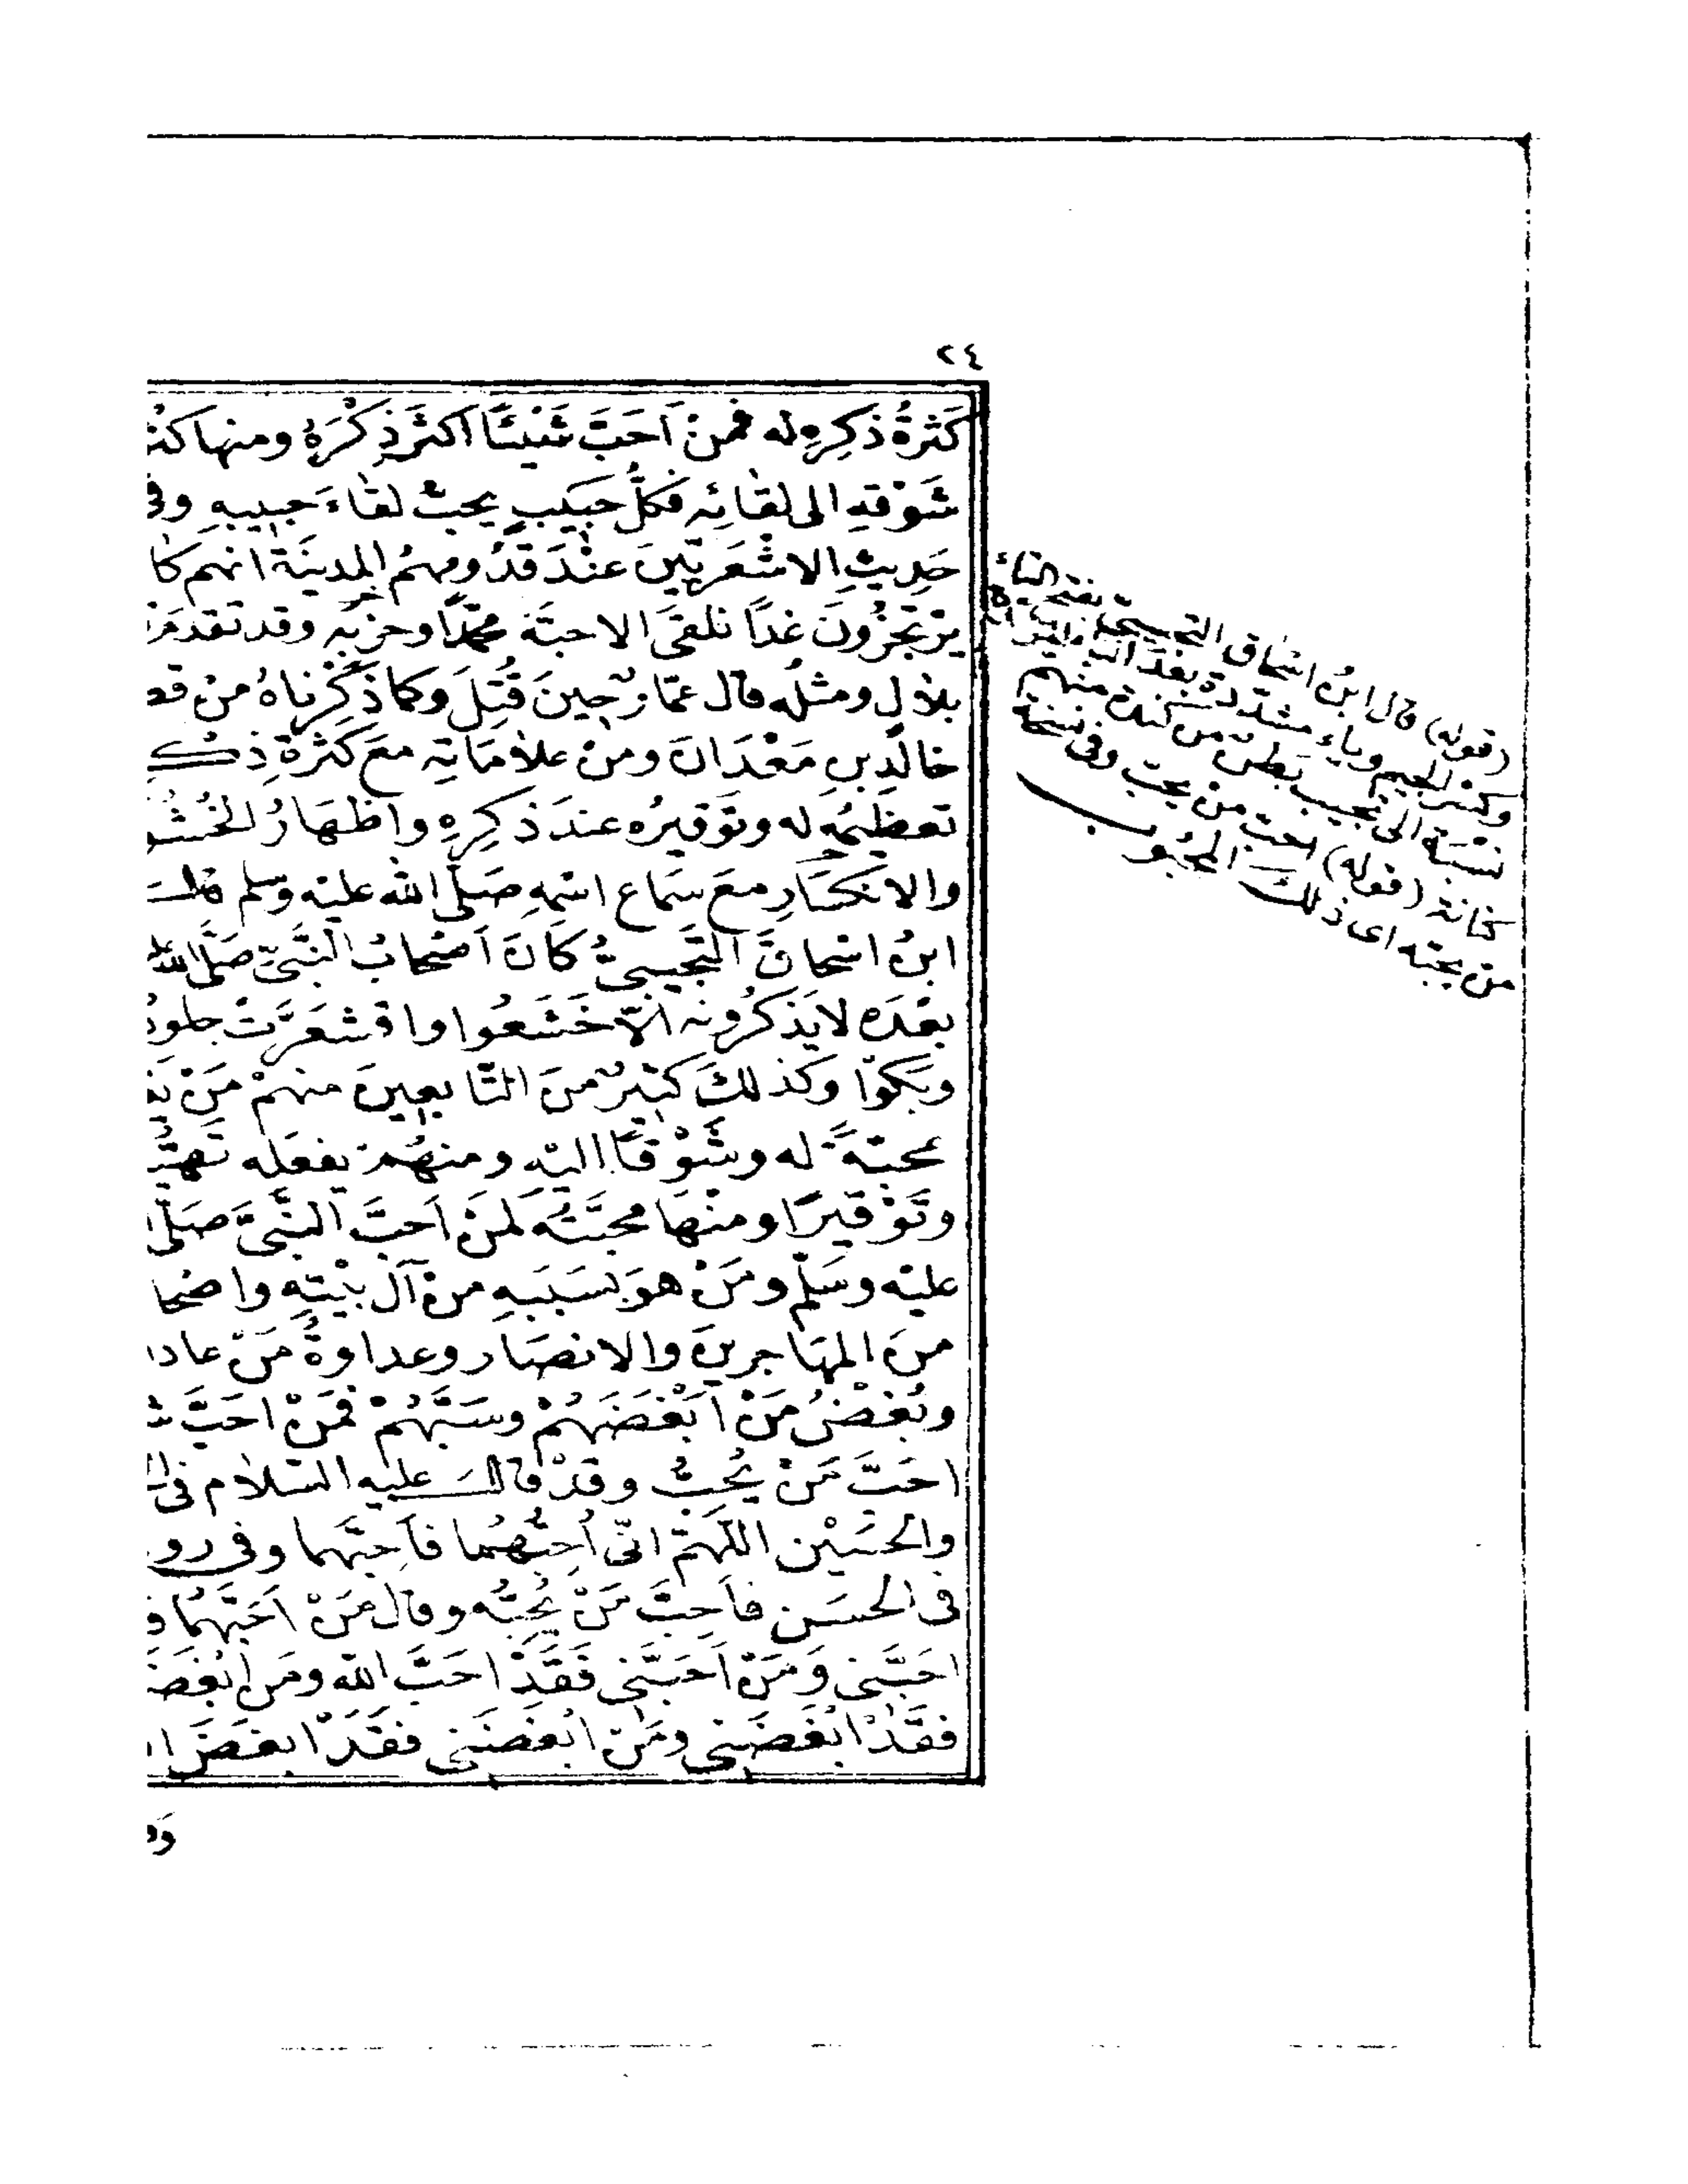 ٢٤
كَثرةُ ذكرِهِ له فمنْ اَحَبَّ شَيْئًا اَكثَرَ ذِكْرَهُ ومنها كث
شَوْقهِ الى لقائه فكلُّ حَبيبٍ يحبُّ لقاءَ حبيبهِ وفى
حَديثِ الاشْعَريّينَ عنْدَ قدُومِهمُ المدينَةَ انهم كا
يرْتَجزُونَ غدًا نلقَى الاحبَّهْ محمّدًا وحزبَه وقد تقدمَ
بلالٍ ومثلُه قال عمّارٌ حينَ قُتِلَ وكما ذكَرْناهُ منْ قص
خالدِ بنِ مَعْدَانَ ومنْ علامَاتِه معَ كَثْرَةِ ذك
تعظيمُه له وتوقيرُه عندَ ذكرِهِ واظهَارُ الخُشُو
والانكسَارِ معَ سَماعِ اسْمِهِ صَلَّى الله عليْه وسلم قال
ابنُ اسْحاقَ التُّجَيبىُّ كَانَ اَصْحابُ النَّبىِّ صَلَّى الله
بعْدَه لا يَذكرُونه الاّ خَشَعُوا واقشعَرَّتْ جلود
وبَكَوْا وكذلكَ كثيرٌ منَ التّابعينَ منهمْ مَنْ يَف
محبّةً له وشَوْقًا اليْه ومنهُمْ يفعَله تَهيُّ
وتَوْقيرًا ومنْهَا محبَّتُه لمَنْ اَحَبَّ النَّبىَّ صَلَّى
عليْه وسَلّم ومَنْ هوَ بسَبَبهِ منْ آلِ بيْتهِ واصْحا
منَ المهَاجرينَ والانصَار وعداوةُ مَنْ عادا
وبُغْضُ مَنْ اَبْغَضَهُمْ وسَبَّهُمْ فمَنْ احَبَّ ش
احَبَّ مَنْ يُحبُّ وقدْ قال عليه السّلام فى ال
والحسَيْن اللّهمّ انّى اُحبُّهُما فاَحبَّهما وفى رو
فى الحسَن فاَحِبَّ مَنْ يُحبُّه وقال مَنْ اَحَبَّهُمَا ف
احَبَّنى وَمَنْ اَحَبَّنى فَقَدْ احَبَّ الله ومَن ابْغَضَ
فقَدْ ابْغَضَنى ومَنْ ابْغَضَنى فقَدْ ابغَضَ ا
وق
(قوله) قال ابنُ اسْحَاق التجيبىّ بفتح التاء
وكسْر الجيم وياء مشدّدة بعْدَ الباء
نسْبَة الى تجيب بَطن من كندة منهم
(قوله) احبّ من يحبّ وفى نسْخة
من يحبّه اى ذلك المحْبُوب